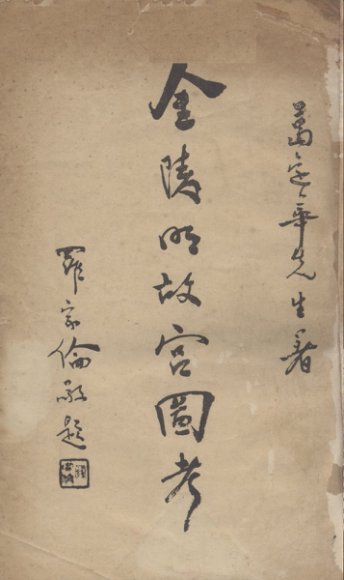 葛定華先生著
金陵明故宮圖考
羅家倫敬題